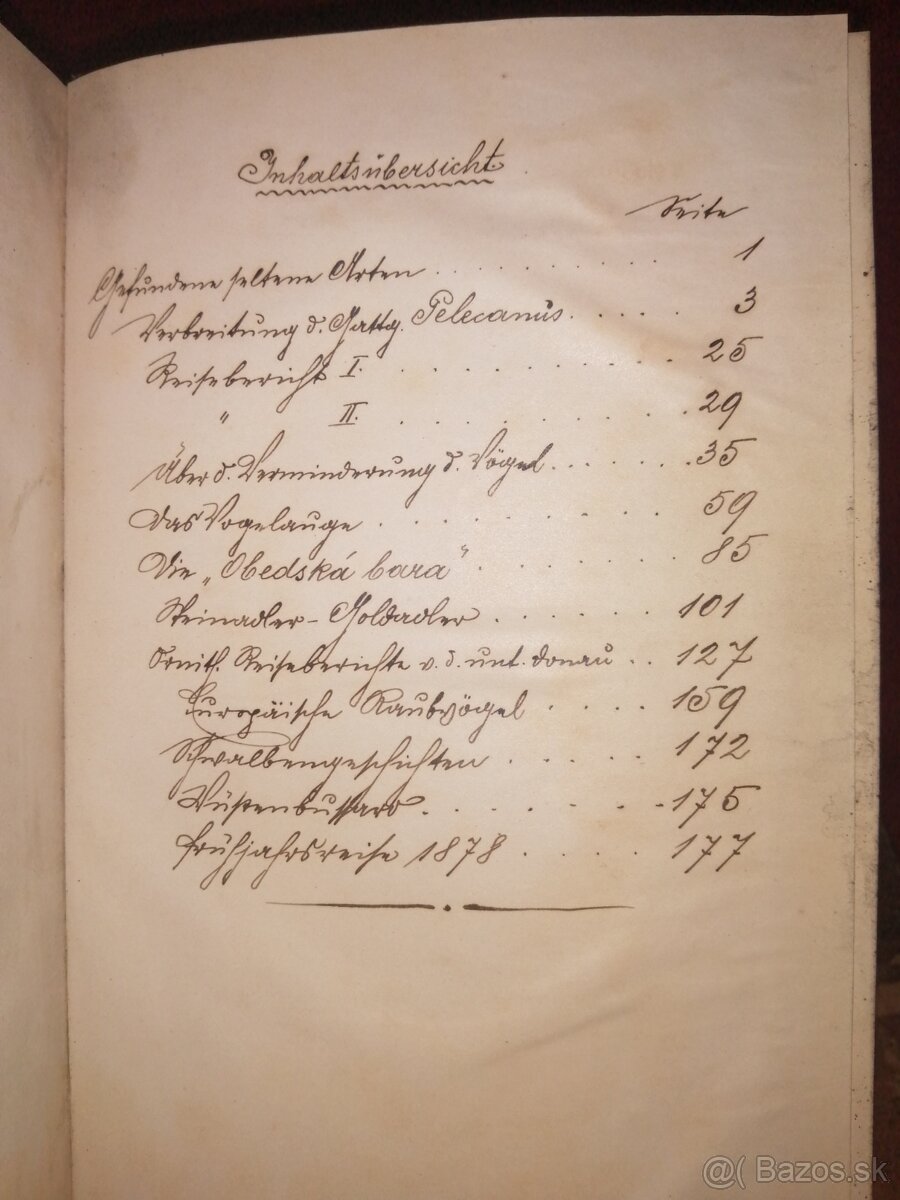 Inhaltsübersicht
Seite
Gefundene seltene Arten . . . . . . . . . . 1
Verbreitung d. Gattg. Pelecanus. . . . . . 3
Reisebericht I. . . . . . . . . . . . 25
" II. . . . . . . . . . . 29
Über d. Verminderung d. Vögel. . . . . . 35
Das Vogelauge . . . . . . . . . 59
Die „Obedská bara" . . . . . . . 85
Steinadler - Goldadler . . . . . . 101
Ornith. Reiseberichte v. d. unt. Donau . . 127
Europäische Raubvögel . . . . 159
Schwalbengeschichten . . . . . 172
Wüstenbussard . . . . . . . 175
Frühjahrsreise 1878 . . . . 177
@( Bazos.sk